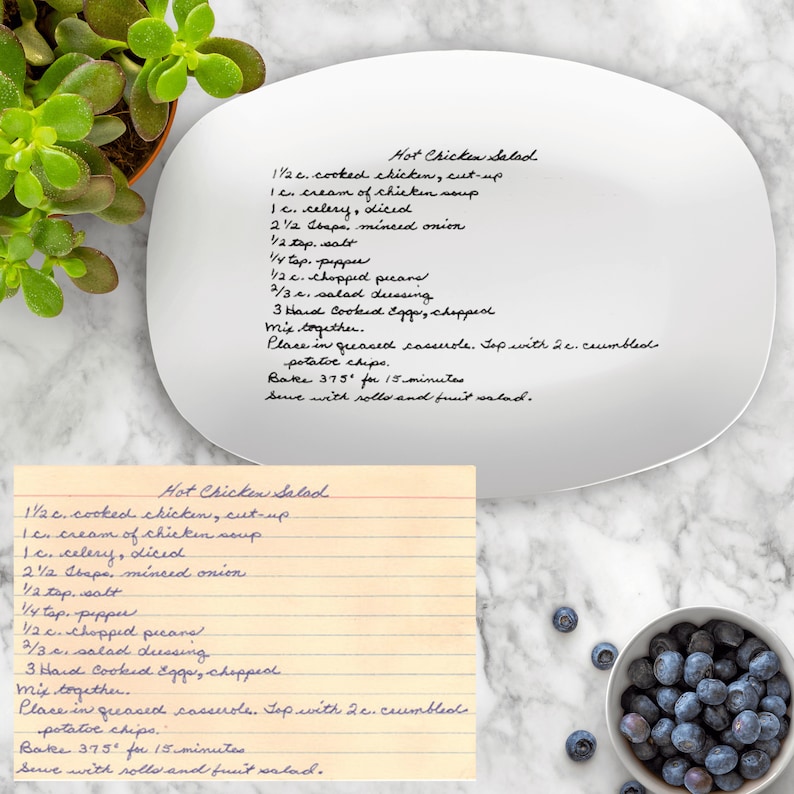 Hot Chicken Salad
1 1/2 c. cooked chicken, cut-up
1 c. cream of chicken soup
1 c. celery, diced
2 1/2 Tbsps. minced onion
1/2 tsp. salt
1/4 tsp. pepper
1/2 c. chopped pecans
2/3 c. salad dressing
3 Hard Cooked Eggs, chopped
Mix together.
Place in greased casserole. Top with 2 c. crumbled
potatoe chips.
Bake 375° for 15 minutes
Serve with rolls and fruit salad.
Hot Chicken Salad
1 1/2 c. cooked chicken, cut-up
1 c. cream of chicken soup
1 c. celery, diced
2 1/2 Tbsps. minced onion
1/2 tsp. salt
1/4 tsp. pepper
1/2 c. chopped pecans
2/3 c. salad dressing
3 Hard Cooked Eggs, chopped
Mix together.
Place in greased casserole. Top with 2 c. crumbled
potatoe chips.
Bake 375° for 15 minutes
Serve with rolls and fruit salad.